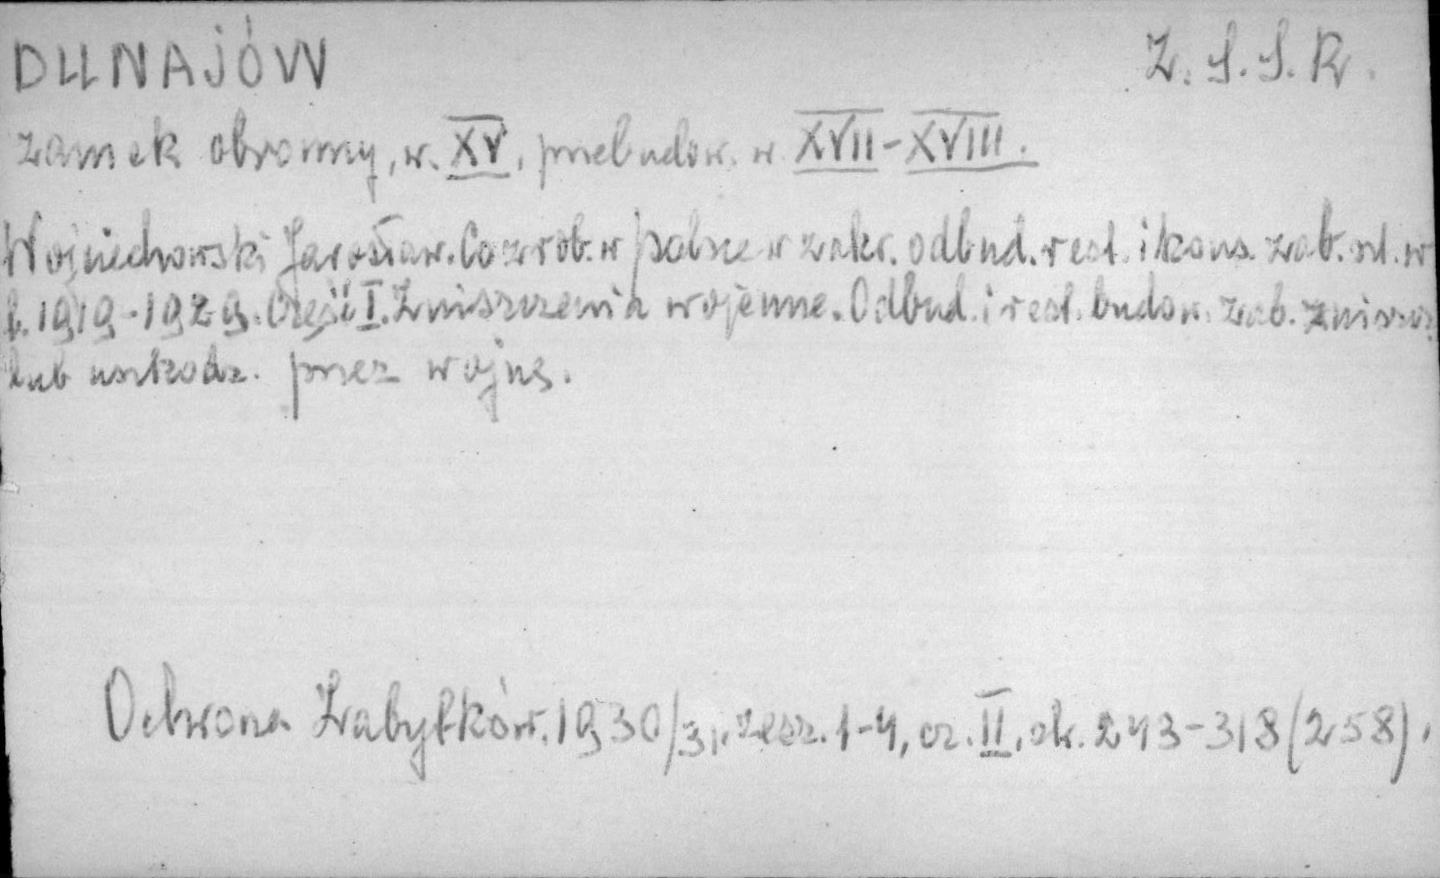 DUNAJÓW Z.S.S.R.
zamek obronny, w. XV, przebudow. w XVII-XVIII.
Wojciechowski Jarosław. Co zrob. w Polsce w zakr. odbud. rest. i kons. zab. szt. w
l. 1919-1929. Część I. Zniszczenia wojenne. Odbud. i rest. budow. zab. zniszcz.
lub uszkodz. przez wojnę.
Ochrona Zabytków. 1930/31. zesz. 1-4, cz. II, str. 243-318 (258).